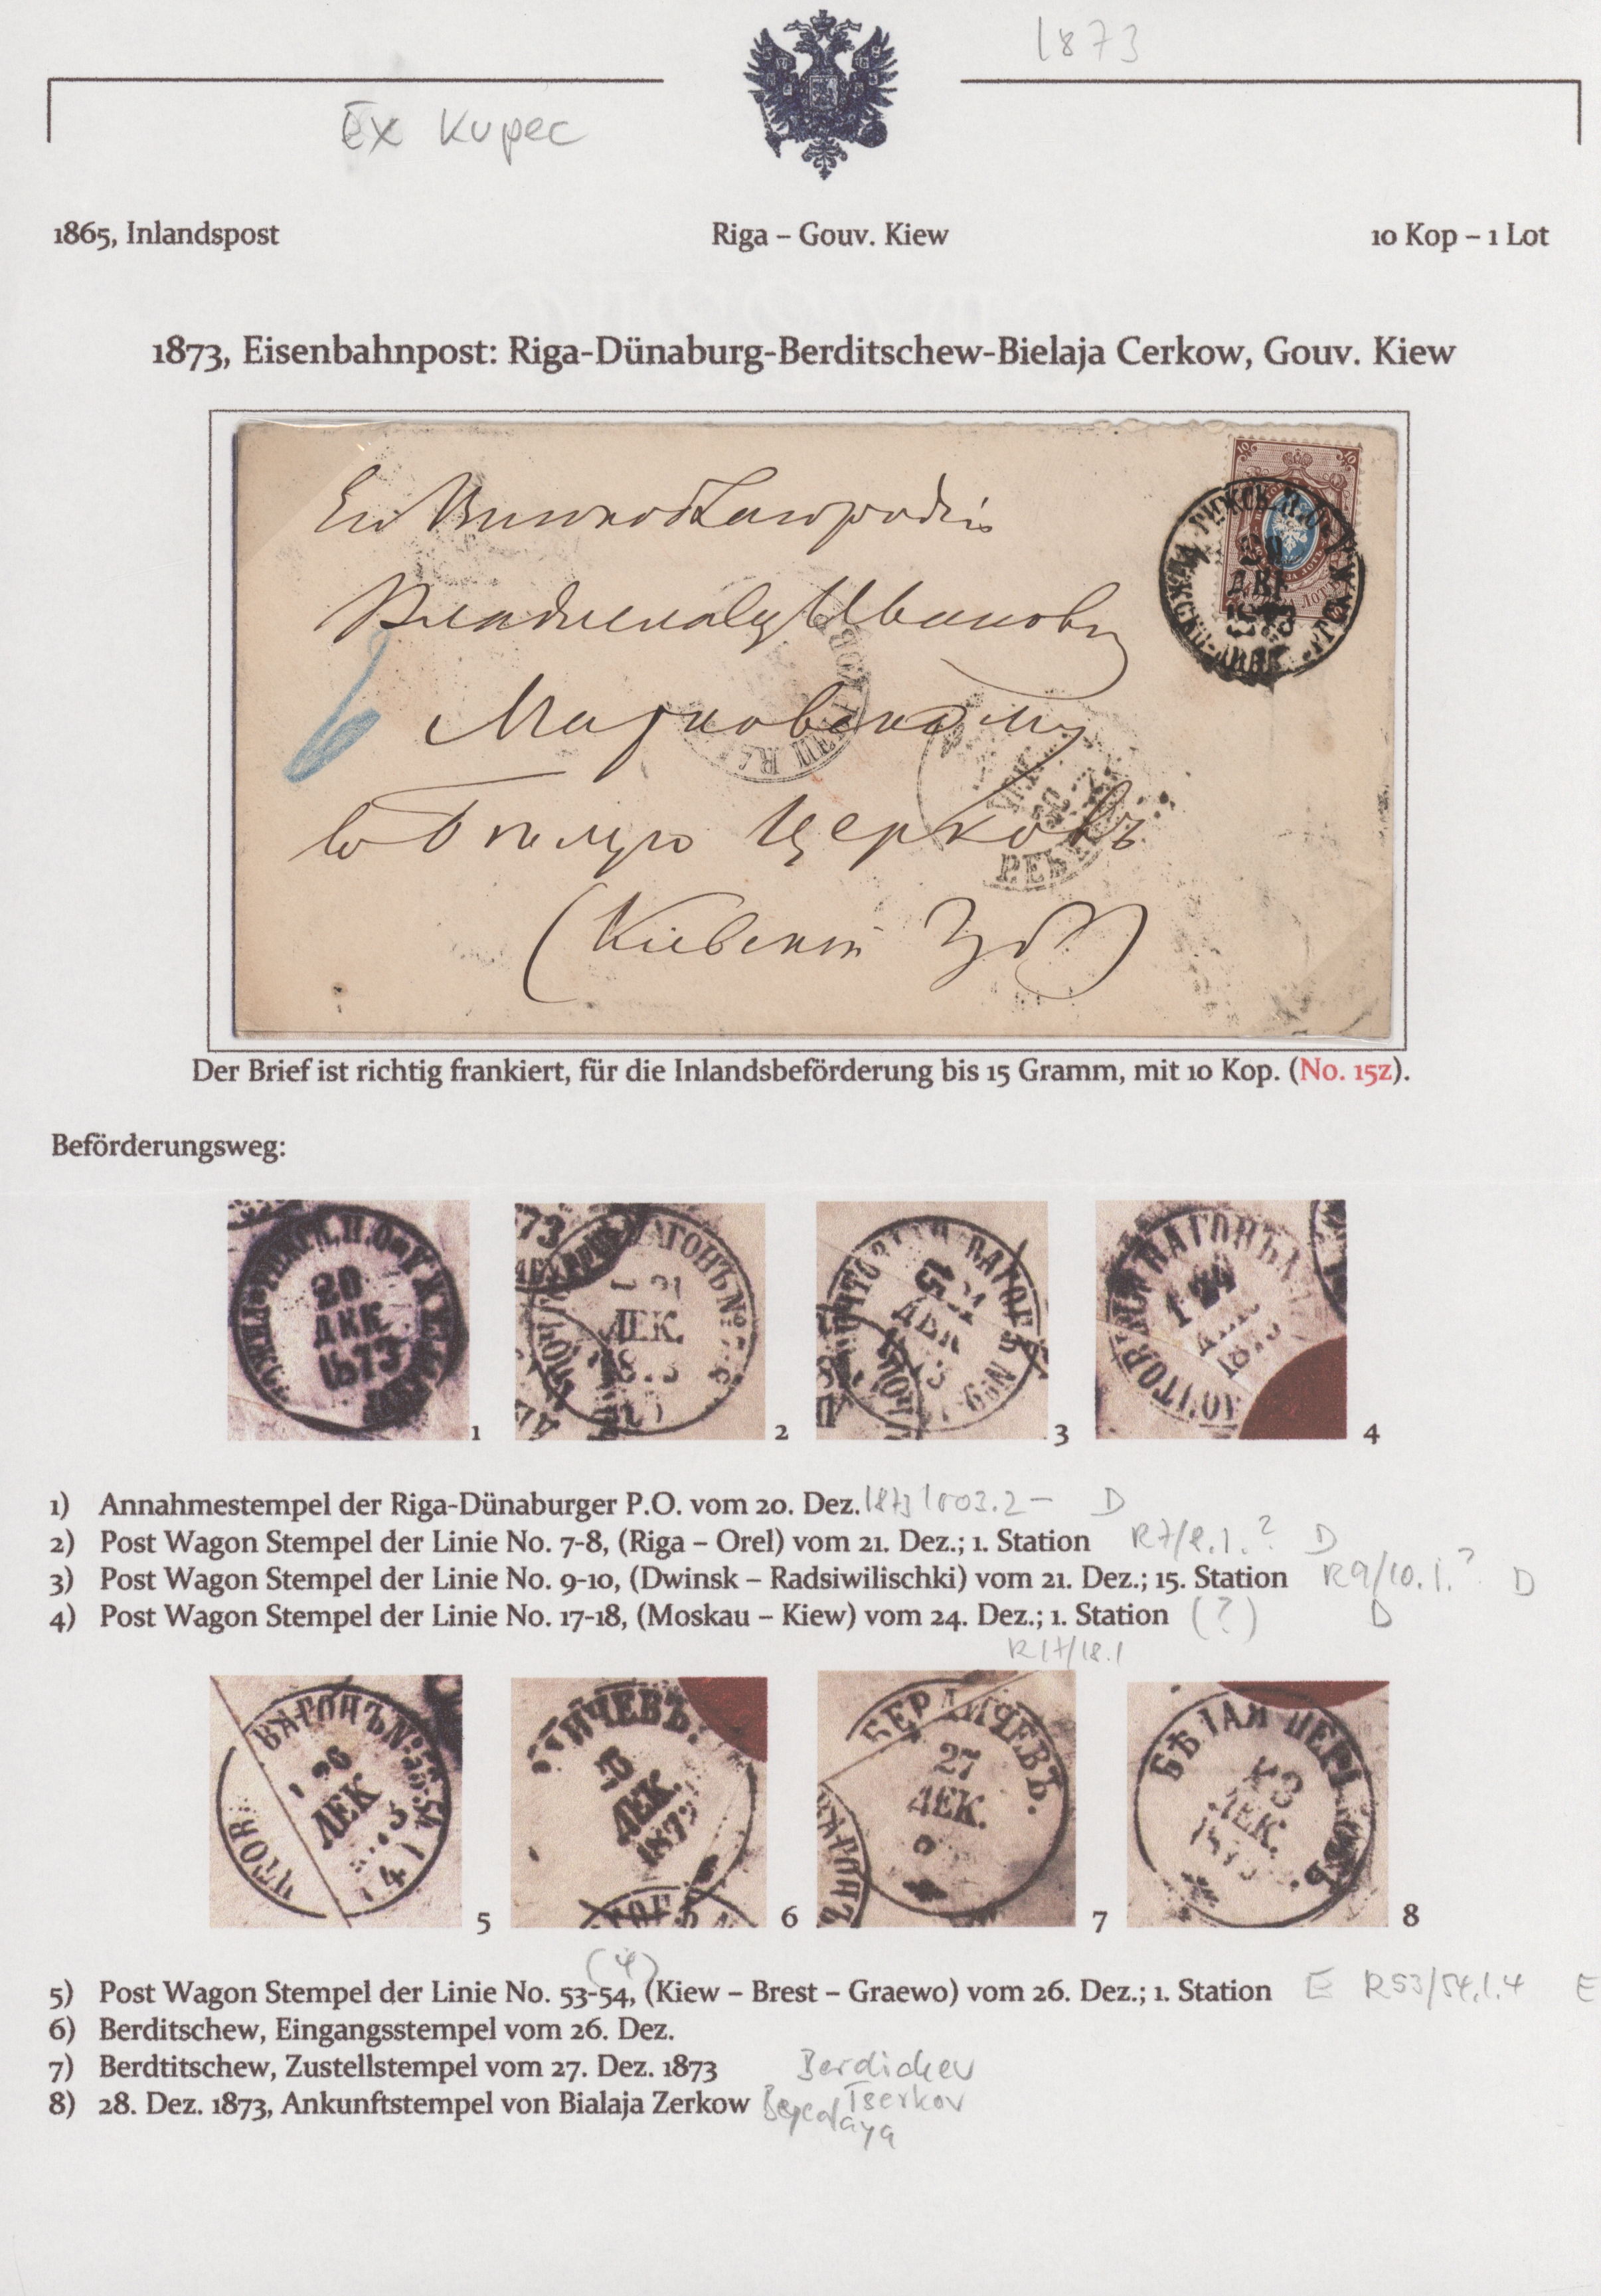 1873
Ex Kupec
1865, Inlandspost
Riga – Gouv. Kiew
10 Kop – 1 Lot
1873, Eisenbahnpost: Riga-Dünaburg-Berditschew-Bielaja Cerkow, Gouv. Kiew
Ивановичу
Церковъ
(Киевской Губ)
20
ДЕК
Der Brief ist richtig frankiert, für die Inlandsbeförderung bis 15 Gramm, mit 10 Kop. (No. 15z).
Beförderungsweg:
20
ДЕК.
1873
1
ВАГОНЪ №
ДЕК.
2
ВАГОНЪ № 9
3
ВАГОНЪ
24
4
1) Annahmestempel der Riga-Dünaburger P.O. vom 20. Dez. 1873 1003.2 – D
2) Post Wagon Stempel der Linie No. 7-8, (Riga – Orel) vom 21. Dez.; 1. Station R7/8.1.? D
3) Post Wagon Stempel der Linie No. 9-10, (Dwinsk – Radsiwilischki) vom 21. Dez.; 15. Station R9/10.1.? D
4) Post Wagon Stempel der Linie No. 17-18, (Moskau – Kiew) vom 24. Dez.; 1. Station (?) D
R17/18.1
ВАГОНЪ № 53-54
26
ДЕК
5
ДИЧЕВЪ.
ДЕК.
1873
6
БЕРДИЧЕВЪ.
27
ДЕК.
7
БѢЛАЯ ЦЕРКОВЬ
ДЕК.
8
(4)
5) Post Wagon Stempel der Linie No. 53-54, (Kiew – Brest – Graewo) vom 26. Dez.; 1. Station E R53/54.1.4 E
6) Berditschew, Eingangsstempel vom 26. Dez.
7) Berdtitschew, Zustellstempel vom 27. Dez. 1873 Berdichev
8) 28. Dez. 1873, Ankunftstempel von Bialaja Zerkow Tserkov